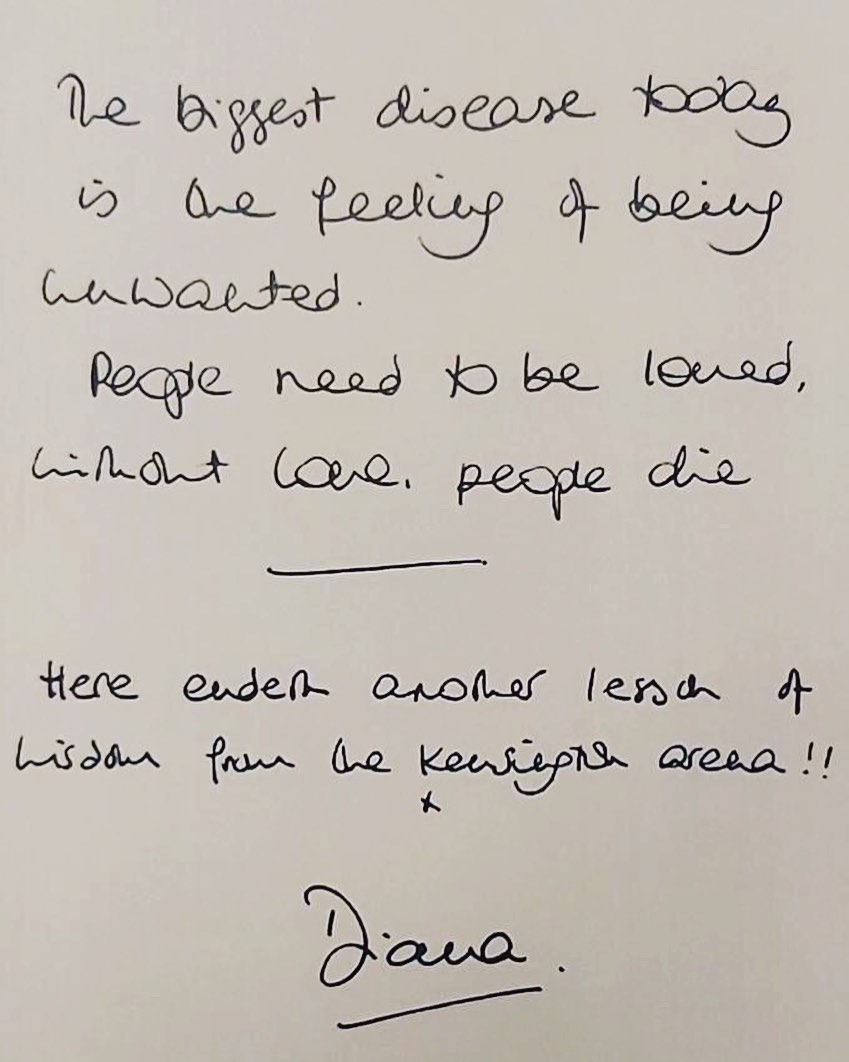 The biggest disease today
is the feeling of being
unwanted.
People need to be loved,
without love, people die
Here endeth another lesson of
wisdom from the Kensington arena!!
x
Diana.